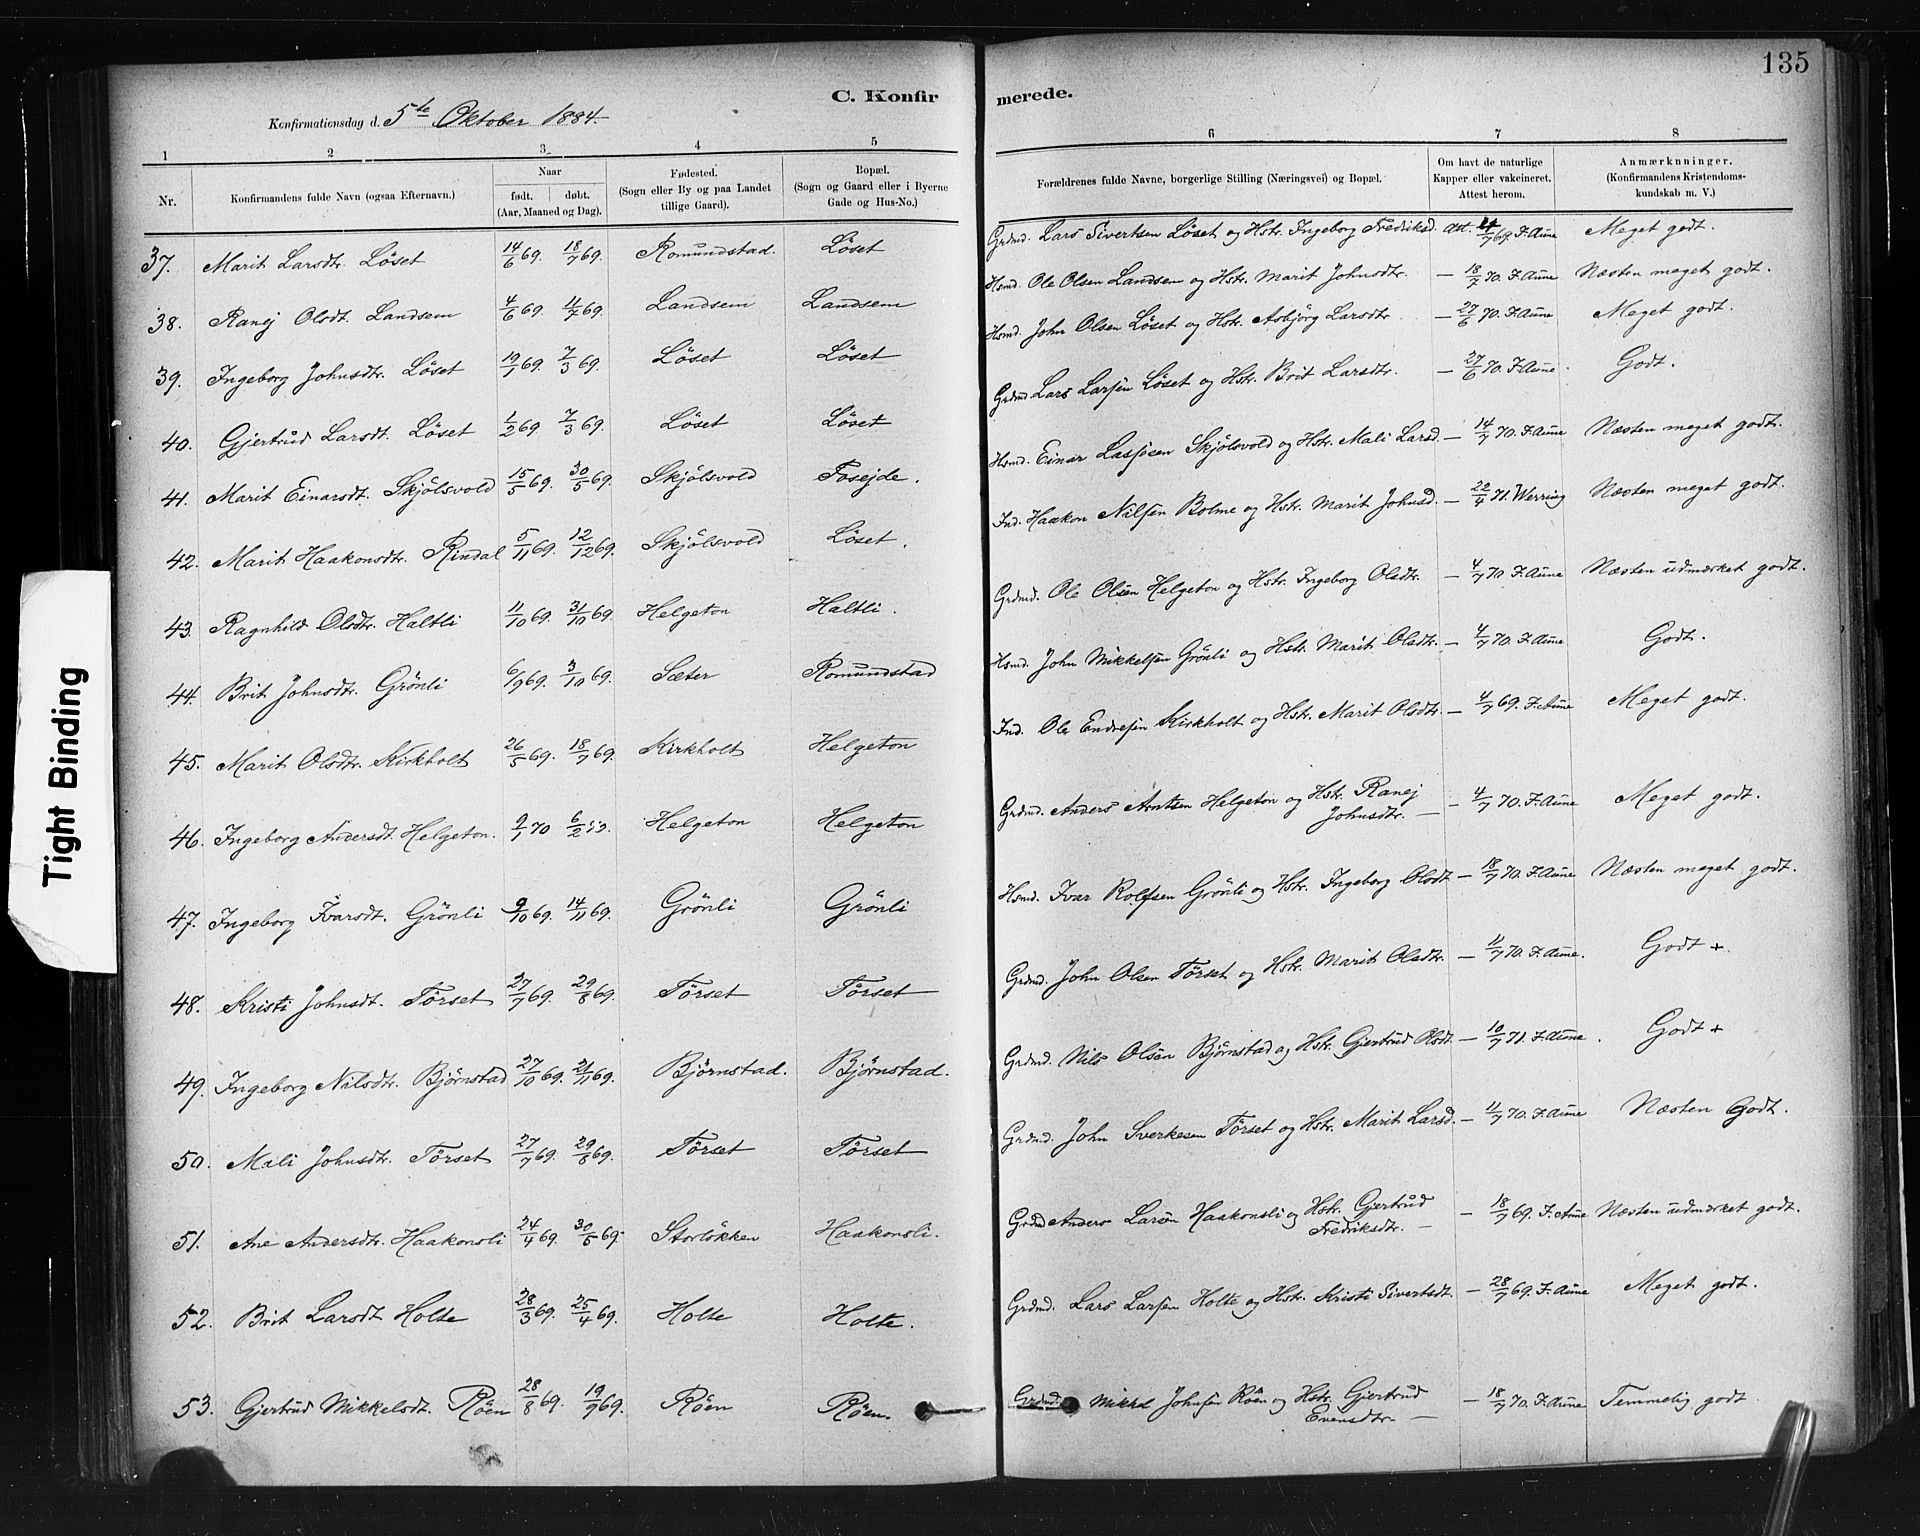 135
C. Konfirmerede.
Konfirmationsdag d. 5te Oktober 1884.
1 2 3 4 5 6 7 8
Nr. Konfirmandens fulde Navn (ogsaa Efternavn). Naar født. døbt. (Aar, Maaned og Dag). Fødested. (Sogn eller By og paa Landet tillige Gaard). Bopæl. (Sogn og Gaard eller i Byerne Gade og Hus-No.) Forældrenes fulde Navne, borgerlige Stilling (Næringsvei) og Bopæl. Om havt de naturlige Kapper eller vakcineret. Attest herom. Anmærkninger. (Konfirmandens Kristendomskundskab m. V.)
37. Marit Larsdtr. Löset 14/6 69. 18/7 69. Romundstad. Löset Grdmd. Lars Sivertsen Löset og Hstr. Ingeborg Fredriksd. att. /7 69. F. Aune Meget godt.
38. Ranej Olsdt. Landsem 4/6 69 11/7 69. Landsem Landsem Hsmd. Ole Olsen Landsem og Hstr. Marit Johnsdtr. — 18/7 70. F. Aune Næsten meget godt.
39. Ingeborg Johnsdtr. Löset 19/1 69. 7/3 69. Löset Löset Hsmd. John Olsen Löset og Hstr. Asbjörg Larsdtr — 27/6 70. F. Aune Meget godt.
40. Gjertrud Larsdt. Löset 1/2 69. 7/3 69. Löset Löset Grdmd. Lars Larsen Löset og Hstr. Brit Larsdtr. — 27/6 70. F. Aune. Godt.
41. Marit Einarsdt. Skjölsvold 15/5 69. 30/5 69. Skjölsvold Fosejde. Hsmd. Einar Lassesen Skjölsvold og Hstr. Mali Larsd. — 14/7 70. F. Aune Næsten meget godt.
42. Marit Haakonsdtr. Rindal 5/11 69. 12/12 69. Skjölsvold Löset. Ind. Haakon Nilsen Bolme og Hstr. Marit Johnsd. — 22/4 71. Werring Næsten meget godt.
43. Ragnhild Olsdtr. Haltli 11/10 69. 31/10 69. Helgeton Haltli. Grdmd. Ole Olsen Helgeton og Hstr. Ingeborg Olsdtr. — 4/7 70 F. Aune Næsten udmærket godt.
44. Brit Johnsdtr. Grönli 6/9 69. 3/10 69. Sæter Romundstad Hsmd. John Mikkelsen Grönli og Hstr. Marit Olsdtr. — 4/7 70. F. Aune Godt.
45. Marit Olsdtr. Kirkholt 26/5 69. 18/7 69. Kirkholt Helgeton Ind. Ole Endresen Kirkholt og Hstr. Marit Olsdtr — 4/7 69. F. Aune Meget godt.
46. Ingeborg Andersdt. Helgeton. 9/1 70 6/2 Helgeton Helgeton Grdmd. Anders Arntsen Helgeton og Hstr. Ranej Johnsdtr. — 4/7 70. F. Aune Meget godt.
47. Ingeborg Ivarsdt. Grönli 9/10 69. 14/11 69. Grönli Grönli Hsmd. Ivar Rolfsen Grönli og Hstr. Ingeborg Olsdt — 18/7 70. F. Aune Næsten meget godt.
48. Kristi Johnsdt. Törset 27/7 69. 29/8 69. Törset Törset Grdmd. John Olsen Törset og Hstr. Marit Olsdtr. — 11/7 70. F. Aune. Godt +
49. Ingeborg Nilsdtr. Björnstad 27/10 69. 21/11 69. Björnstad. Björnstad. Grdmd. Nils Olsen Björnstad og Hstr. Gjertrud Olsdt — 10/7 71. F. Aune. Godt +
50. Mali Johnsdtr. Törset 27/7 69. 29/8 69. Törset Törset Grdmd. John Sverkesen Törset og Hstr. Marit Larsd. — 11/7 70. F. Aune Næsten Godt.
51. Ane Andersdtr. Haakonsli 24/4 69. 30/5 69. Storlökken Haakonsli. Grdmd Anders Larsen Haakonsli og Hstr. Gjertrud Fredriksdtr. — 18/7 69. F. Aune Næsten udmærket godt.
52. Brit Larsdt Holte 28/3 69. 25/4 69. Holte Holte. Grdmd. Lars Larsen Holte og Hstr. Kristi Sivertsdt. — 28/7 69. F. Aune Meget godt.
53. Gjertrud Mikkelsdt. Röen 28/8 69. 19/9 69. Röen Röen. Grdmd. Mikkel Johnsen Röen og Hstr. Gjertrud Evensdtr. — 18/7 70. F. Aune Temmelig godt
Tight Binding